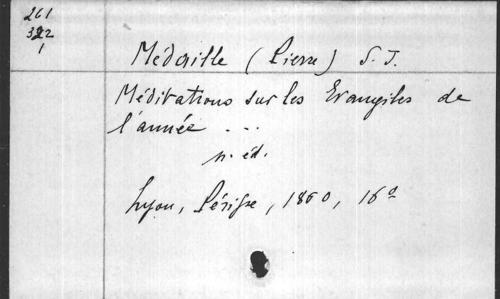 261
322
1
Médaille (Pierre) S. J.
Méditations sur les Evangiles de
l'année ...
n. éd.
Lyon, Périsse, 1860, 16º